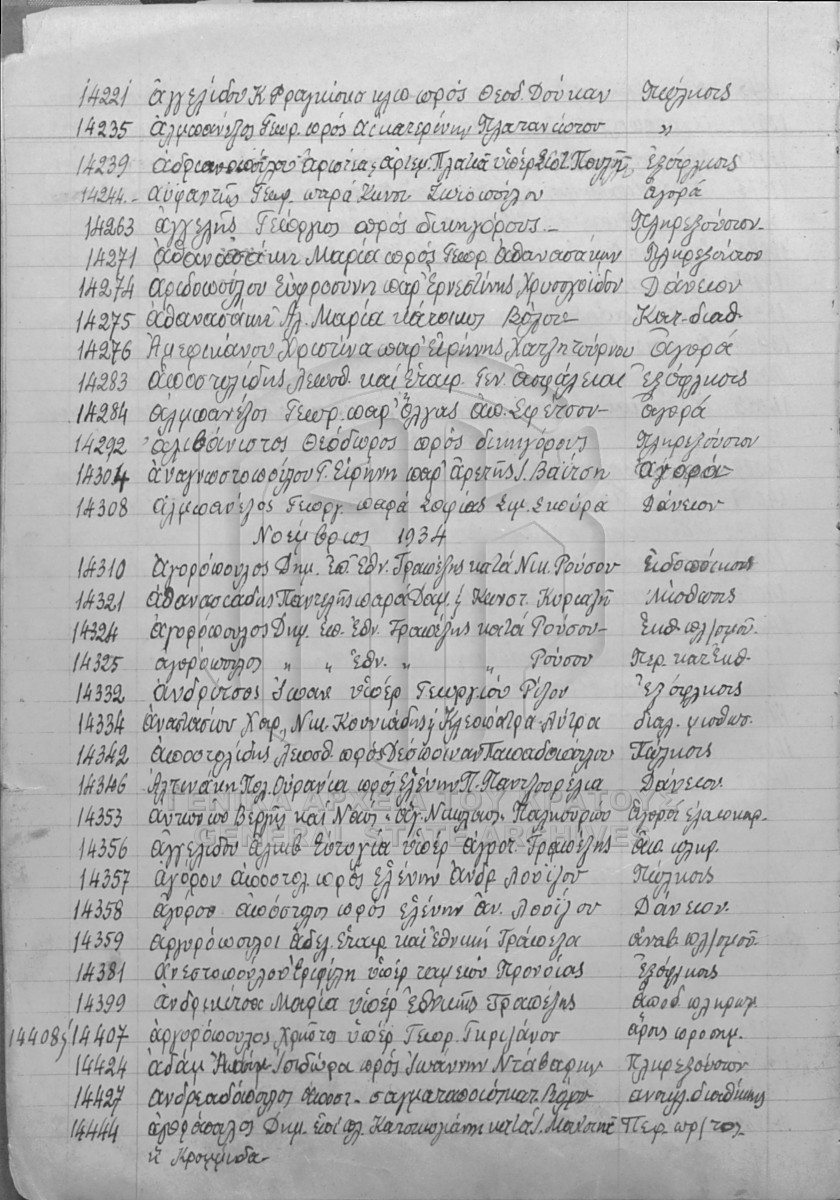 14221 Ἀγγελίδου Κ Φραγκίσκα κλπ πρός Θεοδ. Δούκαν Πώλησις
14235 Ἀλμπανέζος Γεωρ. πρός Αἰκατερίνην Πλατανιώτου "
14239 Ἀδριανοπούλου Ἀριστέα ὑπέρ Ἐξόφλησις
14244 - Ἀυφαντῆς Γεωρ. παρά Κωνστ. Σωτοπούλου ἀγορά
14263 Ἀγγελῆς Γεώργιος πρός δικηγόρους - Πληρεξούσιον
14271 Ἀθανασάκη Μαρία πρός Γεωρ. Ἀθανασάκην Πληρεξούσιον
14274 Ἀριδοπούλου Εὐφροσύνη παρ' Ἐρνεστίνης Χρυσοχοΐδου Δάνειον
14275 Ἀθανασάκη Ἀλ. Μαρία κάτοικος Βόλου Κατ. διαθ.
14276 Ἀμερικάνου Χριστίνα παρ' Εἰρήνης Χατζητσύρνου Ἀγορά
14283 Ἀποστολίδης Λεωσθ. καί Ἑταιρ. Γεν. Ἀσφάλειαι Ἐξόφλησις
14284 Ἀλμπανέζος Γεωρ. παρ' Ὄλγας Ἀπ. Σφέτσου - Ἀγορά
14292 Ἀλιβάνιστος Θεόδωρος πρός δικηγόρους Πληρεξούσιον
14304 Ἀναγνωστοπούλου Γ. Εἰρήνη παρ' Ἀρετῆς Ι. Βαΐτση Ἀγορά
14308 Ἀλμπανέζος Γεωργ. παρά Σοφίας Σιμ. Σκούρα Δάνειον
Νοέμβριος 1934
14310 Ἀγορόπουλος Δημ. ἐπ. Ἐθν. Τραπέζης κατά Νικ. Ρούσου Εἰδοποίησις
14321 Ἀθανασιάδης Παντελῆς παρά Δαμ. ἤ Κωνστ. Κυριαζῆ Μίσθωσις
14324 Ἀγορόπουλος Δημ. ἐπ. Ἐθν. Τραπέζης κατά Ρούσου - Ἐκθ πλ/σμοῦ.
14325 Ἀγορόπουλος " " Ἐθν. " " Ρούσου Περ. κατ Ἐκθ.
14332 Ἀνδρίτσος Ἰωάν ὑπέρ Γεωργίου Ρίζου Ἐξόφλησις
14334 Ἀναστασίου Χαρ., Νικ. Κουνιάδης ἤ Κλεοπάτρα Λύτρα διαλ. μισθωσ.
14342 Ἀποστολίδης Λεωσθ. πρός Δέσποιναν Παπαδοπούλου Πώλησις
14346 Ἀλτινάκη Πολ. Οὐρανία πρός Ἑλένην Π. Παντζουρέλια Δάνειον.
14353 Ἀντωνίου Βεργῆς καί Ναός "Ἁγ. Νικόλαος" Παλησυρίου Ἀγορά ἐλαιοκαρ.
14356 Ἀγγελίδου Ἀλκιβ Εὐτυχία ὑπέρ Ἀγροτ. Τραπέζης Ἀπ. πληρ.
14357 Ἀγόρου Ἀποστολ. πρός Ἑλένην Ἀνδρ Λουίζου Πώλησις
14358 Ἀγόρου Ἀπόστολος πρός Ἑλένην Ἀν. Λουίζου Δάνειον.
14359 Ἀργυρόπουλοι Ἀδελ. Ἑταιρ. καί Ἐθνική Τράπεζα ἀναβ. πλ/σμοῦ
14381 Ἀνεστοπούλου Ἐριφίλη ὑπέρ ταμείου Προνοίας Ἐξόφλησις
14399 Ἀνδρικίτσα Μαρία ὑπέρ Ἐθνικῆς Τραπέζης Ἀποδ. πληρωμ
14408 ἤ 14407 Ἀργυρόπουλος Χρῆστος ὑπέρ Γεωρ. Γκριζάνου ἄρσις προσημ.
14424 Ἀδάμ Ἰσιδώρα πρός Ἰωάννην Ντάβαρην Πληρεξούσιον
14427 Ἀνδρεαδόπουλος Ἀποστ. - σαγματοποιός κατ. Βόλου ἀντιγλ. διαθήκης
14444 Ἀγορόπουλος Δημ. Κατσικογιάννη κατά Ι. Περ. πρ/τολ
ἤ Κρομμύδα -
ΓΕΝΙΚΑ ΑΡΧΕΙΑ ΤΟΥ ΚΡΑΤΟΥΣ
GENERAL STATE ARCHIVES